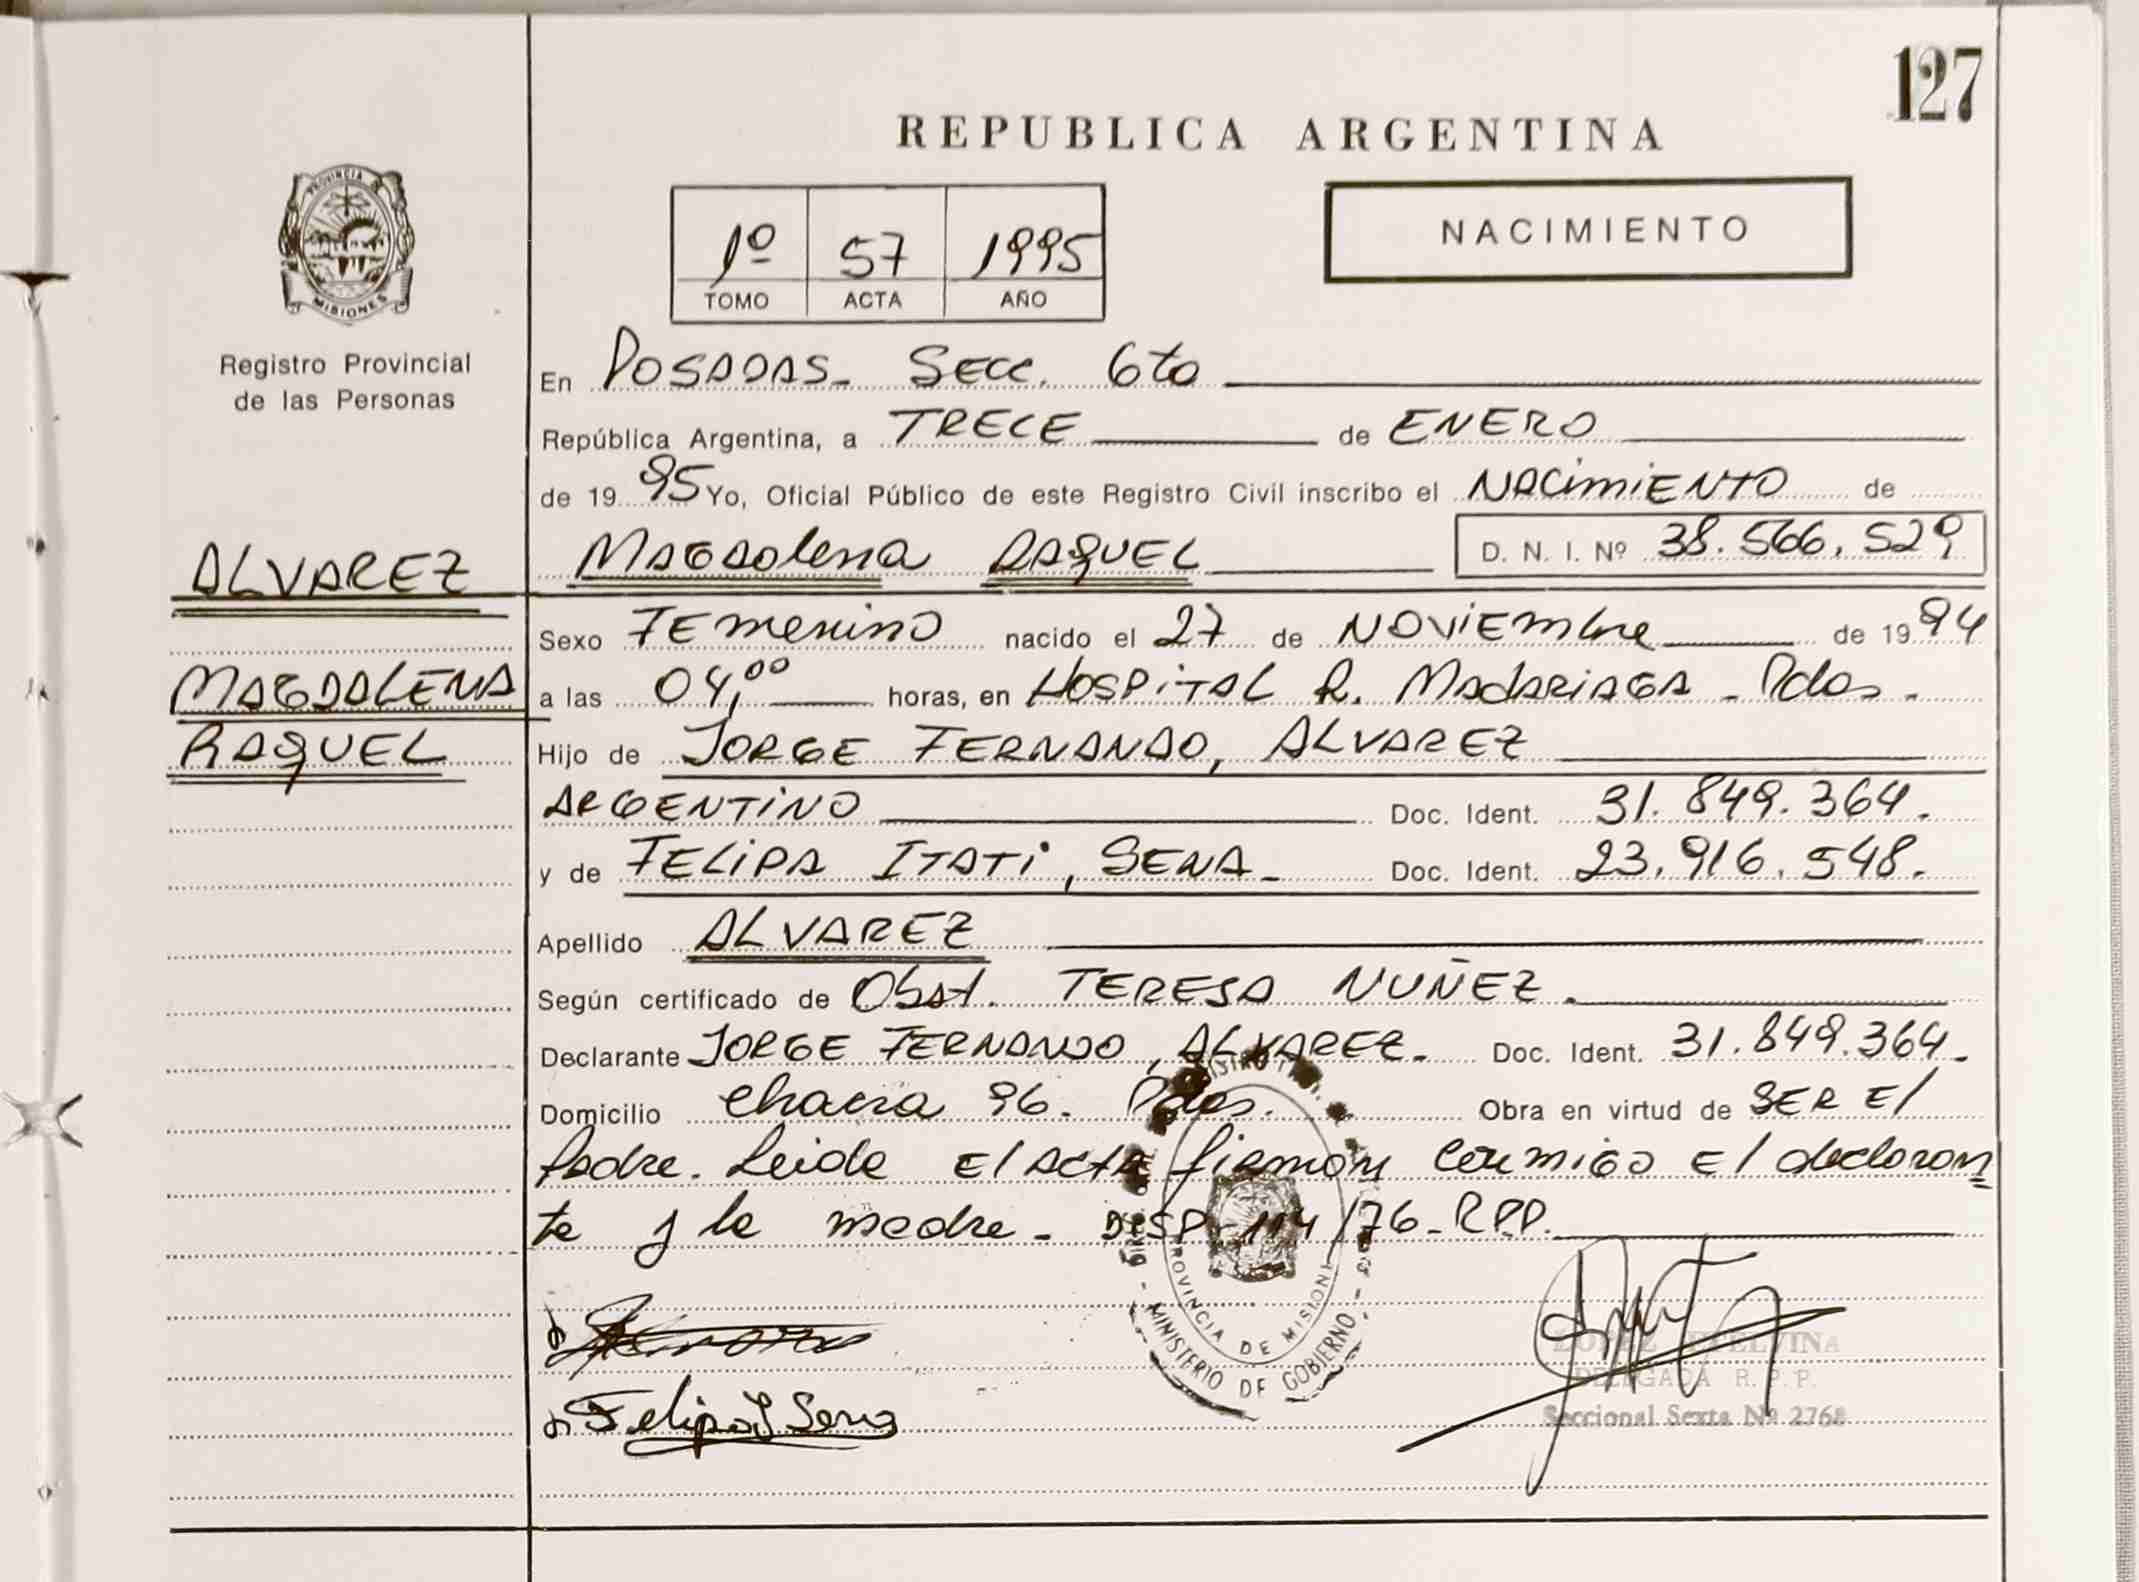 127
REPUBLICA ARGENTINA
PROVINCIA DE
MISIONES
Registro Provincial
de las Personas
1º 57 1995
TOMO ACTA AÑO
NACIMIENTO
En POSADAS - SECC. 6ta
República Argentina, a TRECE de ENERO
de 19 95 Yo, Oficial Público de este Registro Civil inscribo el NACIMIENTO de
ALVAREZ
MAGDALENA
RAQUEL
Magdalena RAQUEL D. N. I. Nº 38.566.529
Sexo FEMENINO nacido el 27 de NOVIEMbre de 19 94
a las 04,00 horas, en HOSPITAL R. MADARIAGA - Pdas.
Hijo de JORGE FERNANDO, ALVAREZ
ARGENTINO Doc. Ident. 31.849.364.
y de FELIPA ITATI, SENA - Doc. Ident. 23.916.548.
Apellido ALVAREZ
Según certificado de Obst. TERESA NUÑEZ.
Declarante JORGE FERNANDO, ALVAREZ. Doc. Ident. 31.849.364.
Domicilio Chacra 96. Pdas. Obra en virtud de SER El
Padre. Leida El ActA firman conmigo El declaran
te y la madre - DISP. 114/76 - RPP.
PROVINCIA DE MISIONES
MINISTERIO DE GOBIERNO
Felipa I Sena
LOPEZ ETELVINA
DELEGADA R. P. P.
Seccional Sexta Nº 2768